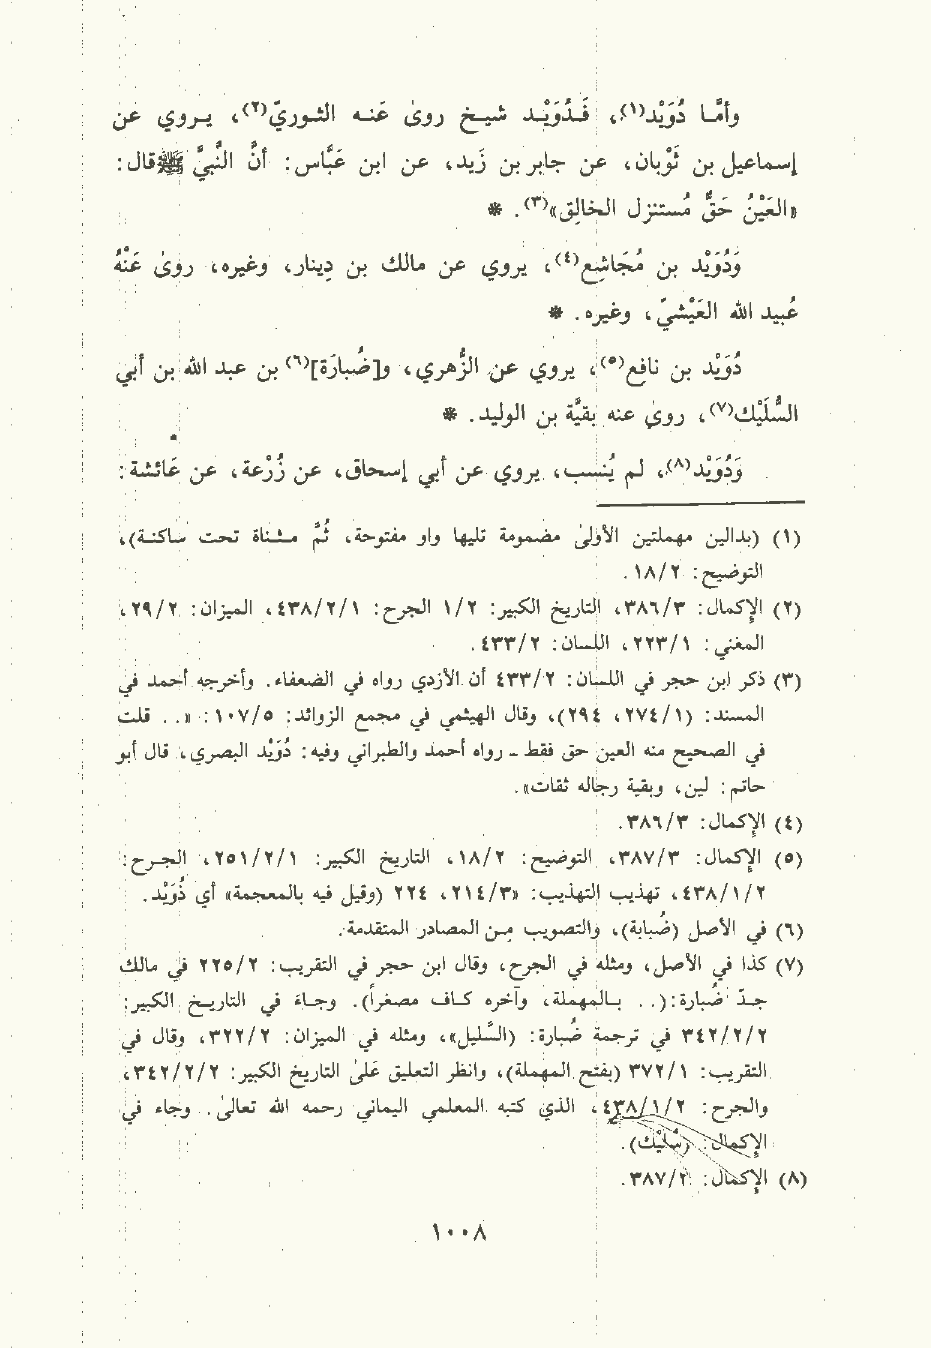 وأمّا دُوَيْد(١)، فَدُوَيْد شيخ روىٰ عَنه الثوريّ(٢)، يروي عن
إسماعيل بن ثَوْبان، عن جابر بن زَيد، عن ابن عَبَّاس: أنَّ النَّبيَّ ﷺ قال:
«العَيْنُ حَقٌّ مُستنزل الخالِق»(٣). *
وَدُوَيْد بن مُجَاشِع(٤)، يروي عن مالك بن دِينار، وغيره، روىٰ عَنْهُ
عُبيد الله العَيْشيّ، وغيره. *
دُوَيْد بن نافع(٥)، يروي عن الزُّهري، و[ضُبارَة](٦) بن عبد الله بن أبي
السُّلَيْك(٧)، روىٰ عنه بقيَّة بن الوليد. *
وَدُوَيْد(٨)، لم يُنسب، يروي عن أبي إسحاق، عن زُرْعة، عن عَائشة:
(١) (بدالين مهملتين الأولىٰ مضمومة تليها واو مفتوحة، ثُمَّ مثناة تحت ساكنة)،
التوضيح: ١٨/٢.
(٢) الإكمال: ٣٨٦/٣، التاريخ الكبير: ١/٢ الجرح: ٤٣٨/٢/١، الميزان: ٢٩/٢،
المغني: ٢٢٣/١، اللسان: ٤٣٣/٢.
(٣) ذكر ابن حجر في اللسان: ٤٣٣/٢ أن الأزدي رواه في الضعفاء. وأخرجه أحمد في
المسند: (٢٧٤/١، ٢٩٤)، وقال الهيثمي في مجمع الزوائد: ١٠٧/٥: «.. قلت
في الصحيح منه العين حق فقط - رواه أحمد والطبراني وفيه: دُوَيْد البصري، قال أبو
حاتم: لين، وبقية رجاله ثقات».
(٤) الإكمال: ٣٨٦/٣.
(٥) الإكمال: ٣٨٧/٣، التوضيح: ١٨/٢، التاريخ الكبير: ٢٥١/٢/١، الجرح:
٤٣٨/١/٢، تهذيب التهذيب: «٢١٤/٣، ٢٢٤ (وقيل فيه بالمعجمة» أي ذُوَيْد.
(٦) في الأصل (ضُبابة)، والتصويب مِن المصادر المتقدمة.
(٧) كذا في الأصل، ومثله في الجرح، وقال ابن حجر في التقريب: ٢٢٥/٢ في مالك
جدّ ضُبارة:(.. بالمهملة، وآخره كاف مصغراً). وجاء في التاريخ الكبير:
٣٤٢/٢/٢ في ترجمة ضُبارة: (السَّليل)»، ومثله في الميزان: ٣٢٢/٢، وقال في
التقريب: ٣٧٢/١ (بفتح المهملة)، وانظر التعليق عَلىٰ التاريخ الكبير: ٣٤٢/٢/٢،
والجرح: ٤٣٨/١/٢، الذي كتبه المعلمي اليماني رحمه الله تعالىٰ. وجاء في
الإكمال: (سُلَيْك).
(٨) الإكمال: ٣٨٧/٢.
١٠٠٨